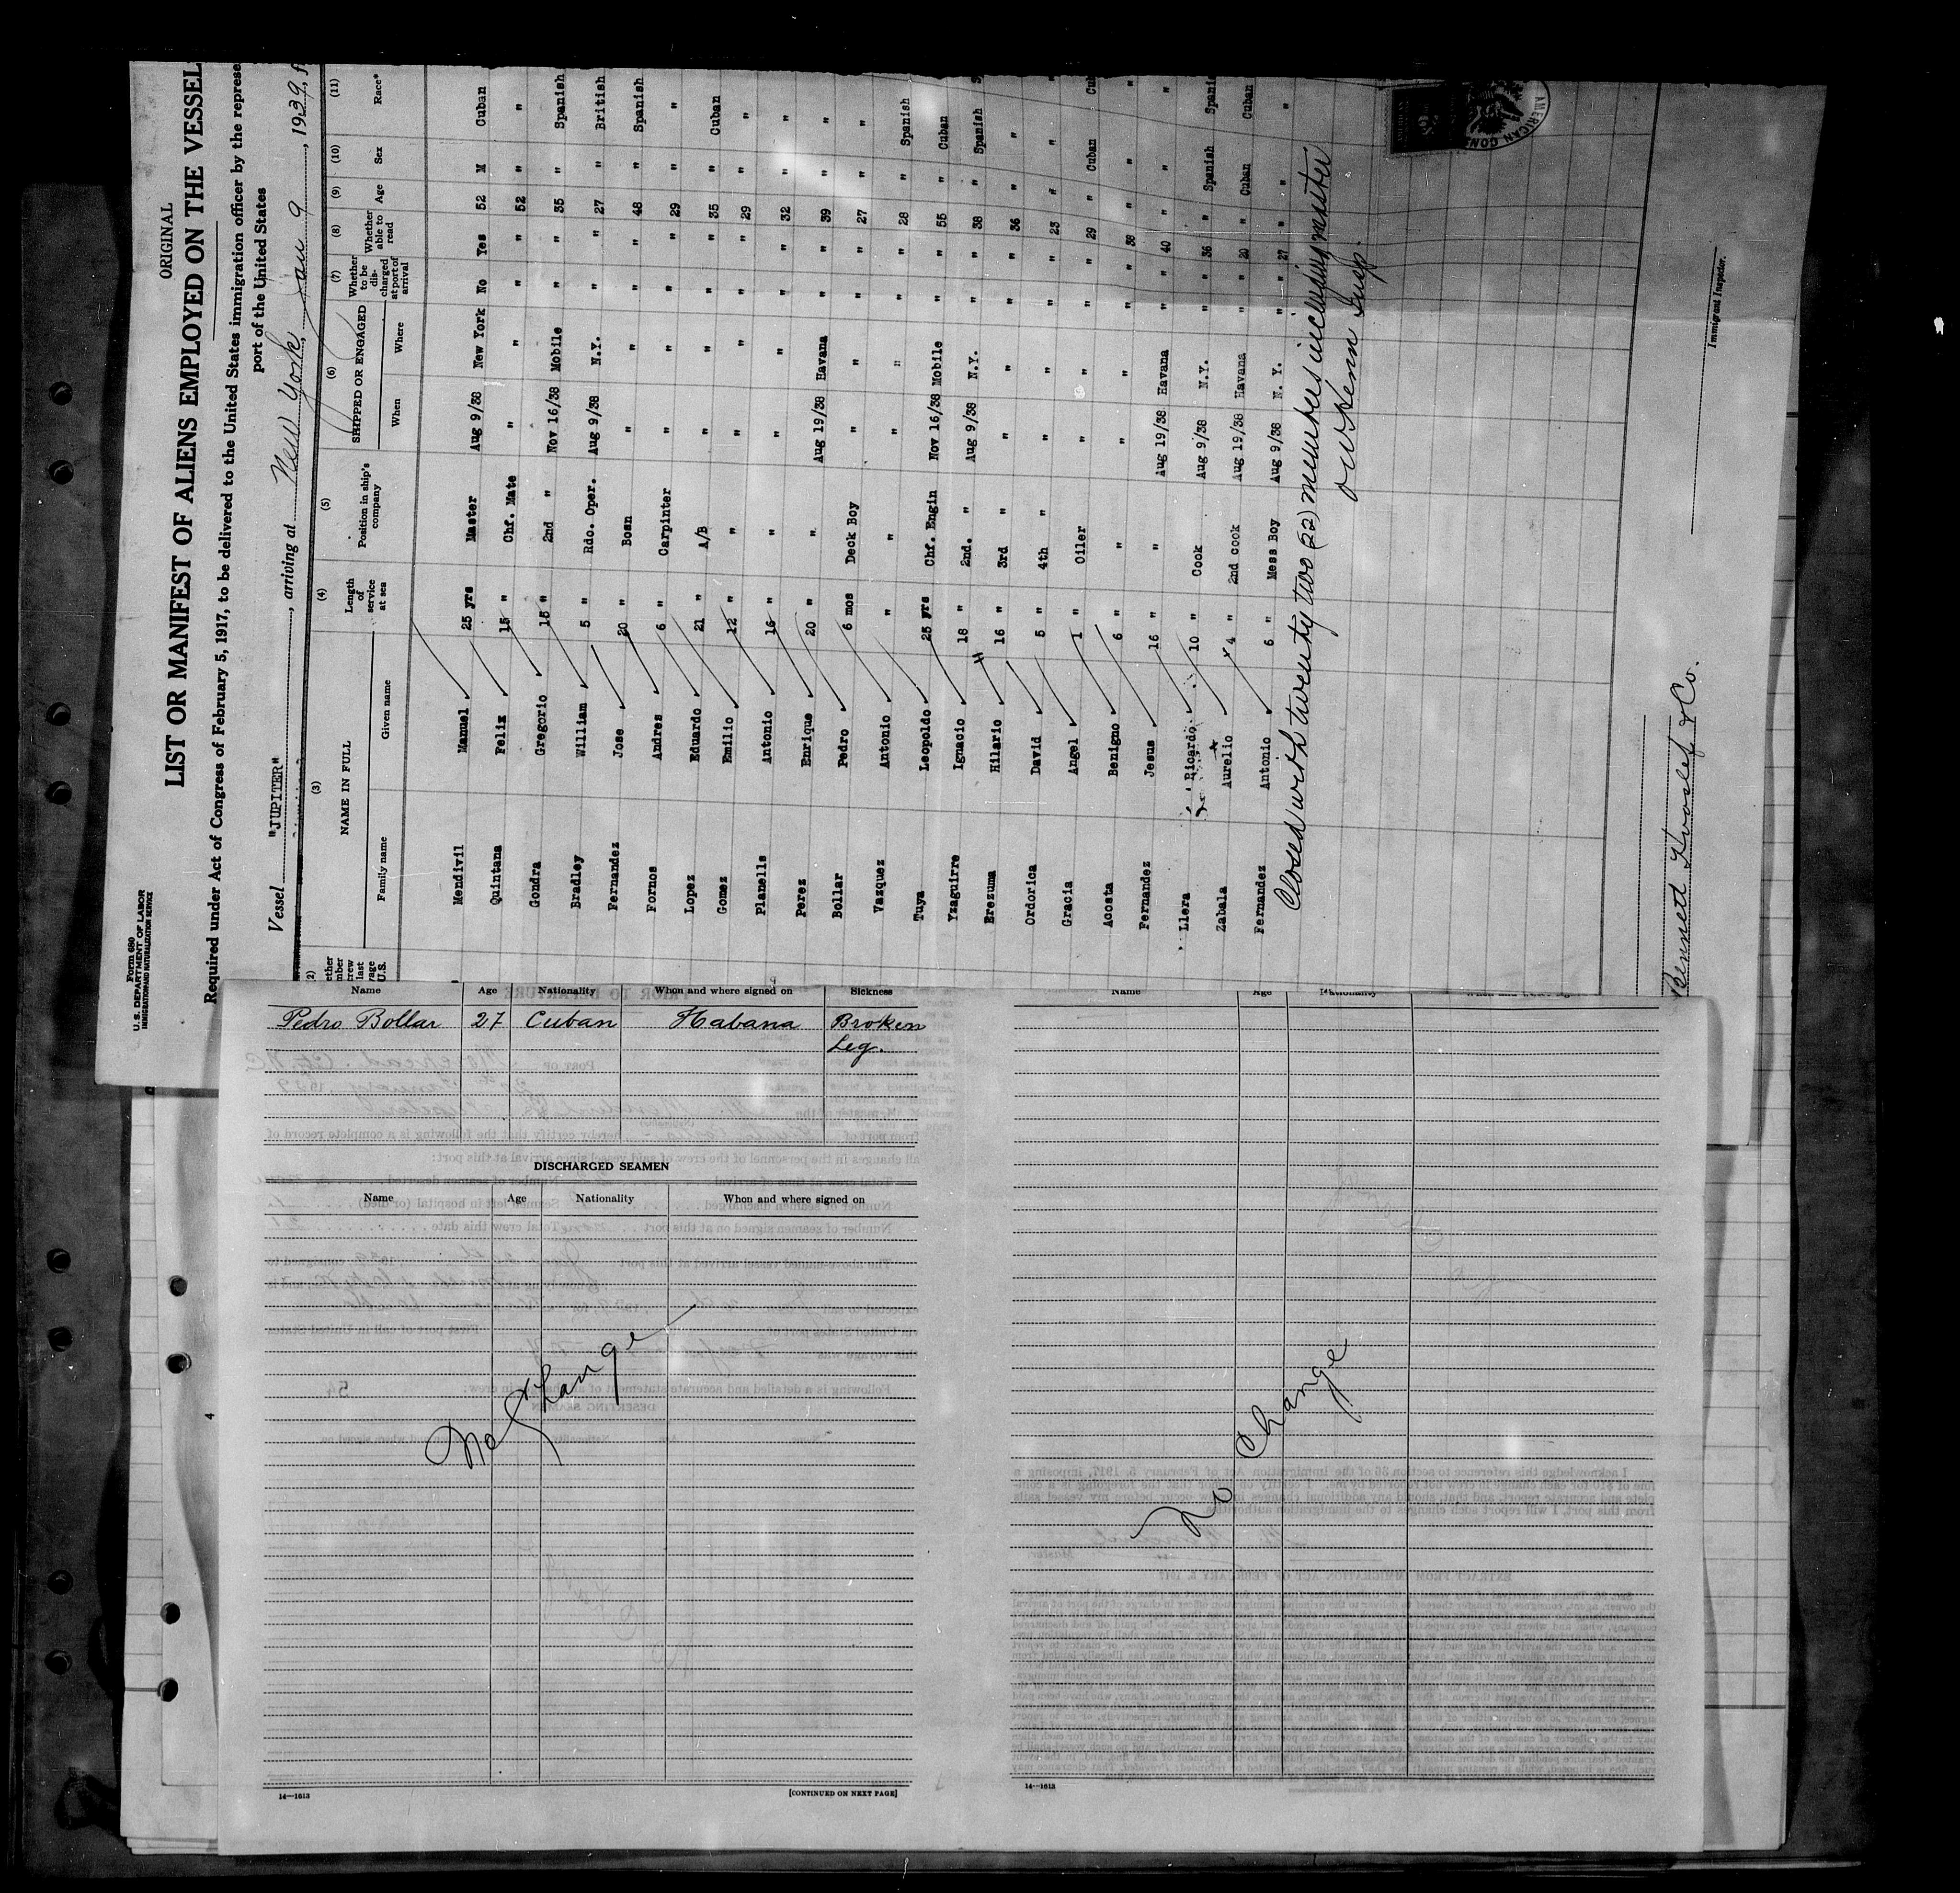 Form 680
U.S. DEPARTMENT OF LABOR
IMMIGRATION AND NATURALIZATION SERVICE
ORIGINAL
LIST OR MANIFEST OF ALIENS EMPLOYED ON THE VESSEL
Required under Act of Congress of February 5, 1917, to be delivered to the United States immigration officer by the represe
port of the United States
Vessel "JUPITER", arriving at New York, Jan 9, 1939, f
(3) (4) (5) (6) (7) (8) (9) (10) (11)
NAME IN FULL Length of service at sea Position in ship's company SHIPPED OR ENGAGED Whether to be discharged at port of arrival Whether able to read Age Sex Race*
Family name Given name When Where
Mendivil Manuel 25 yrs Master Aug 9/38 New York No Yes 52 M Cuban
Quintana Felix 15 " Chf. Mate " " " " 52 " "
Gondra Gregorio 15 " 2nd " Nov 16/38 Mobile " " 35 " Spanish
Bradley William 5 " Rdo. Oper. Aug 9/38 N.Y. " " 27 " British
Fernandez Jose 20 " Bosn " " " " 48 " Spanish
Fornos Andres 6 " Carpinter " " " " 29 " "
Lopez Eduardo 21 " A/B " " " " 35 " Cuban
Gomez Emilio 12 " " " " " " 29 " "
Planells Antonio 16 " " " " " " 32 " "
Perez Enrique 20 " " Aug 19/38 Havana " " 39 " "
Bollar Pedro 6 mos Deck Boy " " " " 27 " "
Vazquez Antonio " " " " " " 28 " Spanish
Tuya Leopoldo 25 yrs Chf. Engin Nov 16/38 Mobile " " 55 " Cuban
Yzaguirre Ignacio 18 " 2nd. " Aug 9/38 N.Y. " " 38 " Spanish
Erezuma Hilario 16 " 3rd " " " " " 36 " "
Ordorica David 5 " 4th " " " " " 23 " "
Gracia Angel 1 " Oiler " " " " 29 " Cuban
Acosta Benigno 6 " " " " " " 38 " "
Fernandez Jesus 16 " " Aug 19/38 Havana " " 40 " "
Llera Ricardo 10 " Cook Aug 9/38 N.Y. " " 36 " Spanish
Zabala Aurelio 4 " 2nd cook Aug 19/38 Havana " " 20 " Cuban
Fernandez Antonio 6 " Mess Boy Aug 9/38 N. Y. " " 27 " "
Closed with twenty two (22) members including master
Insp.
Immigrant Inspector.
Bennett & Co.
AMERICAN CON
Name Age Nationality When and where signed on Sickness
Pedro Bollar 27 Cuban Habana Broken
Leg.
DISCHARGED SEAMEN
Name Age Nationality When and where signed on
No Change
14—1613 [CONTINUED ON NEXT PAGE]
Name Age Nationality When and where signed on
No Change
14—1613
4